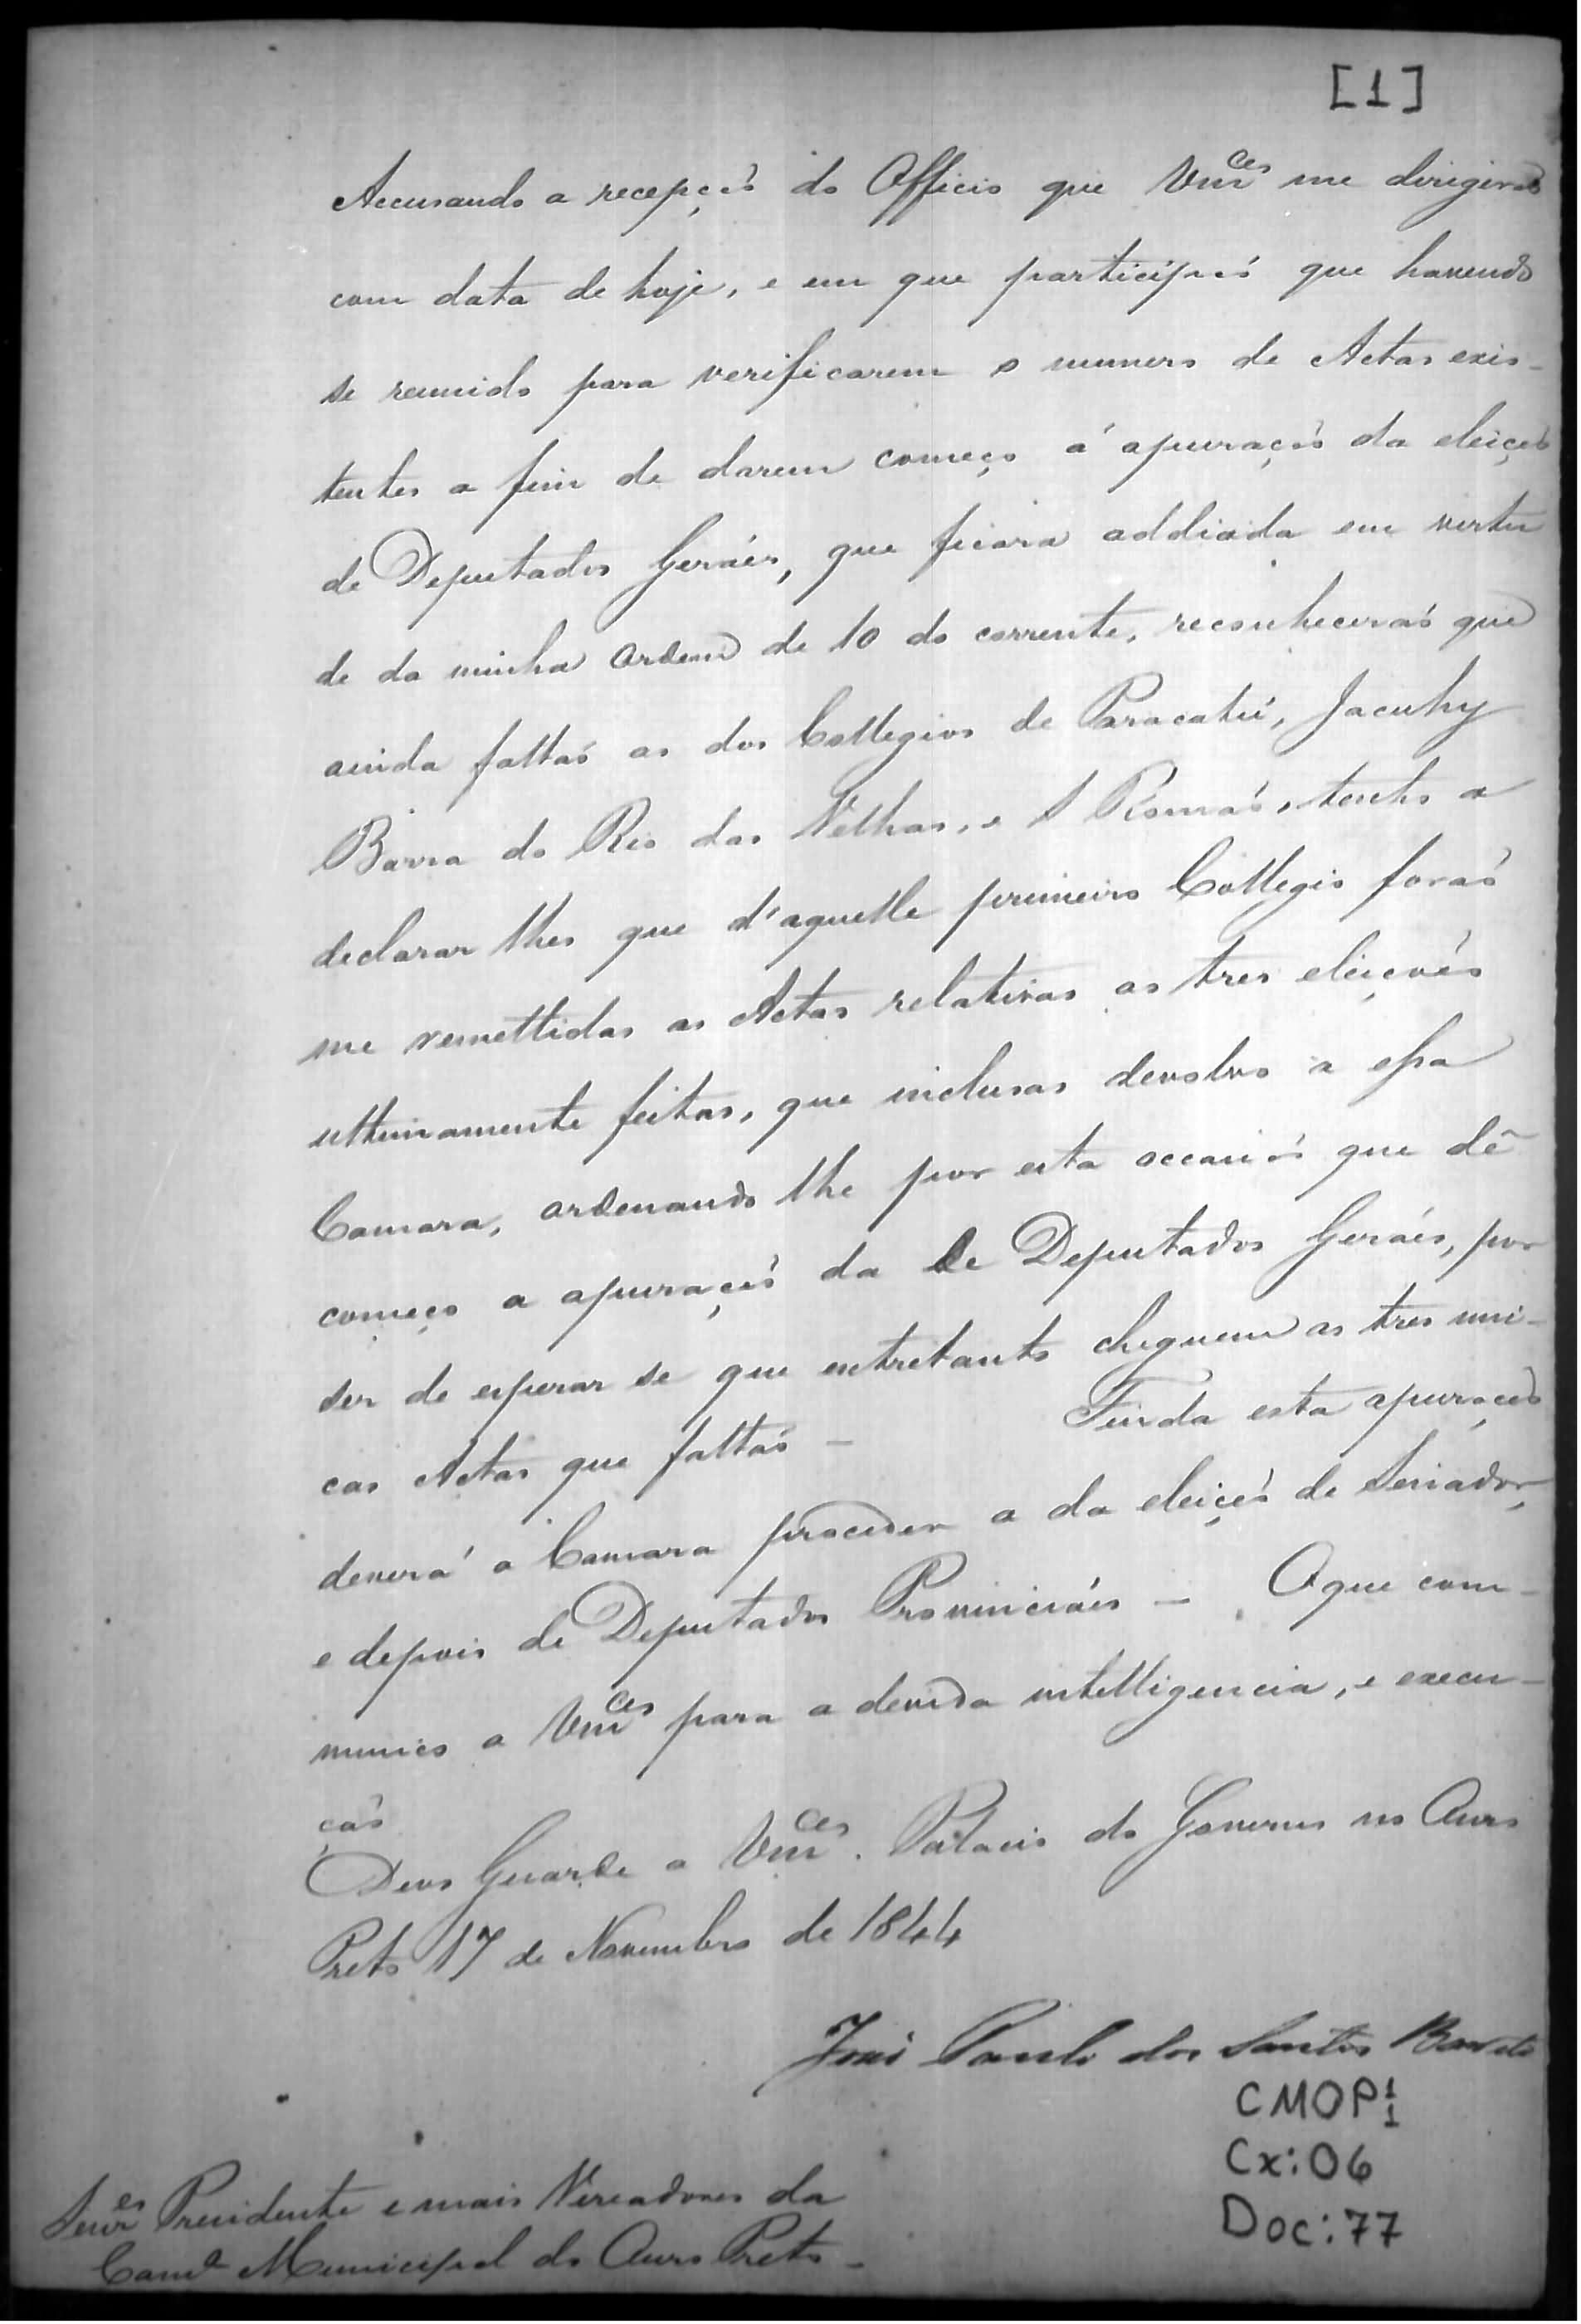 [1]
Accusando a recepção do Officio que Vm.ces me dirigirão
com data de hoje, e em que participão que havendo
se reunido para verificarem o numero de Actas exis-
tentes a fim de darem começo á apuração da eleição
de Deputados Geráes, que ficara addiada em virtu
de da minha ordem de 10 do corrente, reconhecerão que
ainda faltão as dos Collegios de Paracatú, Jacuhy
Barra do Rio das Velhas, e S Romão, tenho a
declarar lhes que d'aquelle primeiro Collegio forão
me remettidas as Actas relativas as tres eleições
ultimamente feitas, que inclusas devolvo a essa
Camara, ordenando lhe por esta occasião que dê
começo a apuração da de Deputados Geráes, por
ser de esperar se que entretanto cheguem as tres uni-
cas Actas que faltão — Finda esta apuração
deverá a Camara proceder a da eleição de Senador,
e depois de Deputados Provinciáes — O que com-
munico a Vm.ces para a devida intelligencia, e execu-
ção
Deos Guarde a Vm.ces. Palacio do Governo no Ouro
Preto 17 de Novembro de 1844
João Paulo dos Santos Barreto
CMOP 1/1
Cx: 06
Doc: 77
Senr.es Presidente e mais Vereadores da
Cam.a Municipal do Ouro Preto —